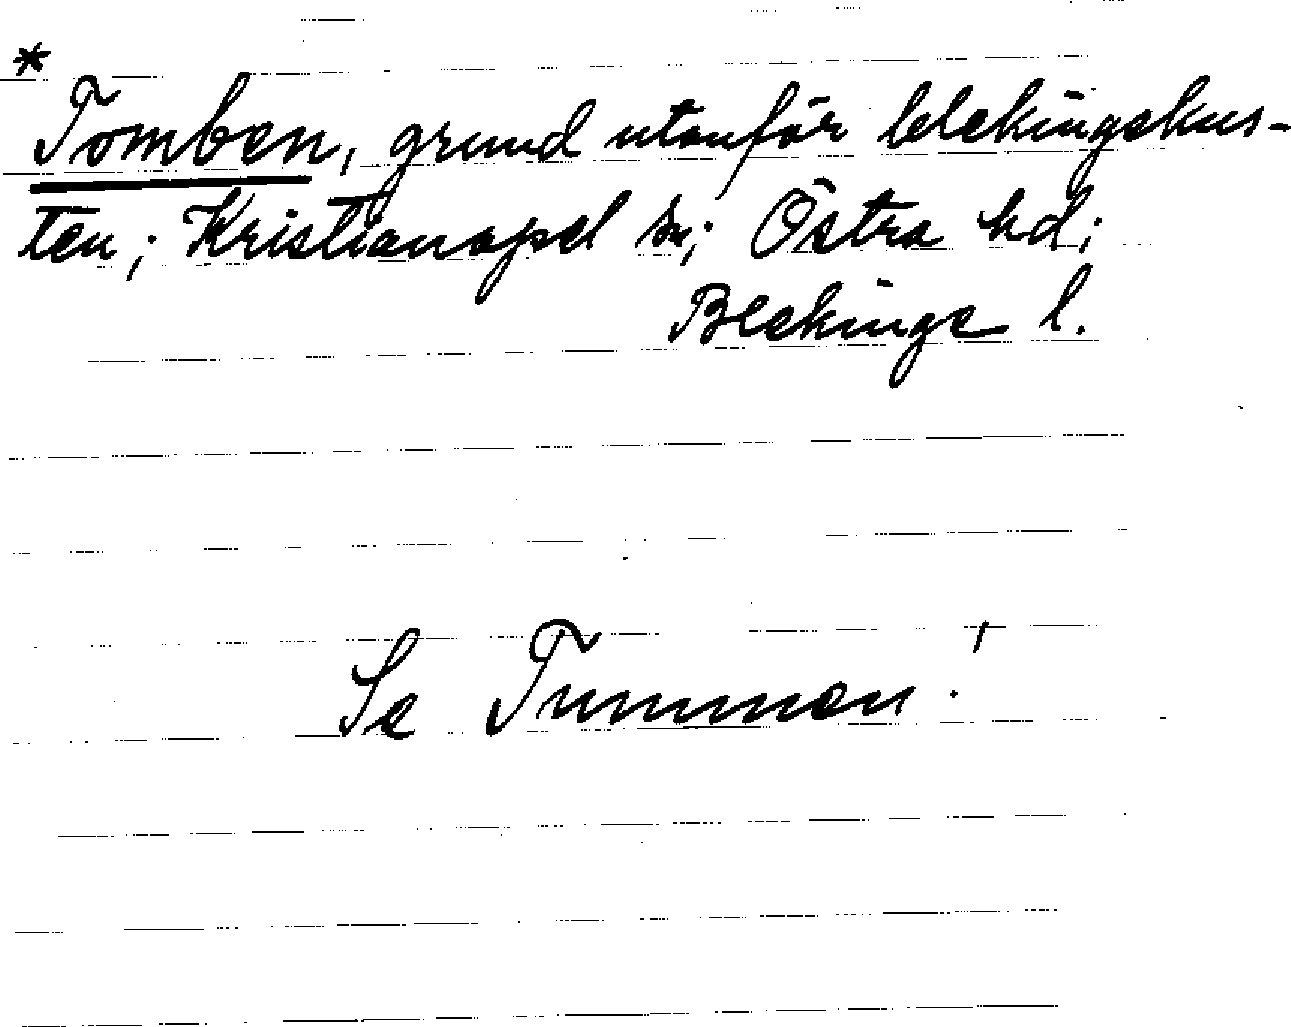 *
Tomben, grund utanför blekingekus-
ten; Kristianopel sn; Östra hd;
Blekinge l.
Se Tummen!